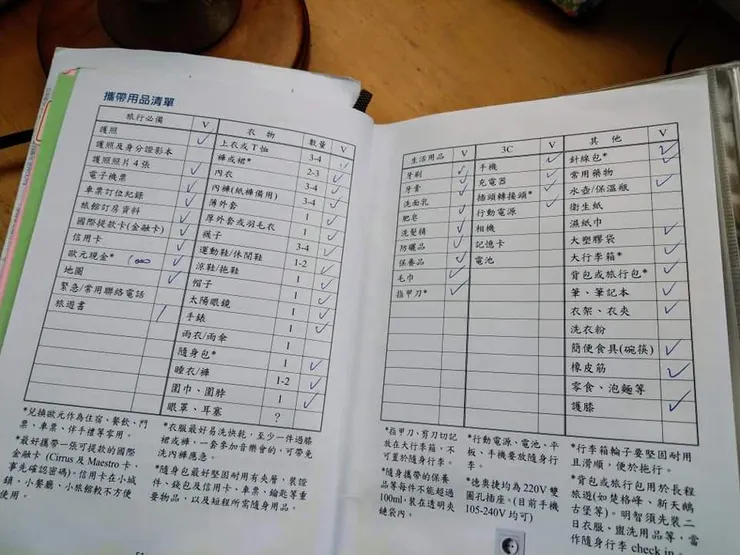 攜帶用品清單
旅行必備 V
護照
護照及身分證影本
護照照片4張
電子機票
車票訂位紀錄
旅館訂房資料
國際提款卡(金融卡)
信用卡
歐元現金* 1000
地圖
緊急/常用聯絡電話
旅遊書
衣物 數量 V
上衣或T恤 3-4
褲或裙* 2-3
內衣 3-4
內褲(紙褲備用) 3-4
薄外套 1
厚外套或羽毛衣 1
襪子 3-4
運動鞋/休閒鞋 1-2
涼鞋/拖鞋 1
帽子 1
太陽眼鏡 1
手錶 1
雨衣/雨傘 1
隨身包* 1
睡衣/褲 1-2
圍巾、圍脖 1
眼罩、耳塞 ?
*兌換歐元作為住宿、餐飲、門
票、車票、伴手禮等零用。
*最好攜帶一張可提款的國際
金融卡 (Cirrus 及 Maestro 卡,
事先確認密碼)。信用卡在小城
鎮,小餐廳、小旅館較不方便
使用。
*衣服最好易洗快乾,至少一件過膝
裙或褲,一套參加音樂會的,可帶免
洗內褲應急。
*隨身包最好堅固耐用有夾層,裝證
件、錢包及信用卡、車票、鑰匙等重
要物品,以及短程所需隨身用品。
生活用品 V
牙刷
牙膏
洗面乳
肥皂
洗髮精
防曬品
保養品
毛巾
指甲刀*
3C V
手機
充電器
插頭轉接頭*
行動電源
相機
記憶卡
電池
其他 V
針線包*
常用藥物
水壺/保溫瓶
衛生紙
濕紙巾
大塑膠袋
大行李箱*
背包或旅行包*
筆、筆記本
衣架、衣夾
洗衣粉
簡便食具(碗筷)
橡皮筋
零食、泡麵等
護膝
*指甲刀、剪刀切記
放在大行李箱,不
可置於隨身行李。
*隨身攜帶的保養
品等每件不能超過
100ml,裝在透明夾
鏈袋內。
*行動電源、電池、平
板、手機要放隨身行
李。
*德奧捷均為220V雙
圓孔插座。(目前手機
105-240V 均可)
*行李箱輪子要堅固耐用
且滑順,便於拖行。
*背包或旅行包用於長程
旅遊(如楚格峰、新天鵝
古堡等)。明智須先裝二
日衣服、盥洗用品等,當
作隨身行李 check in